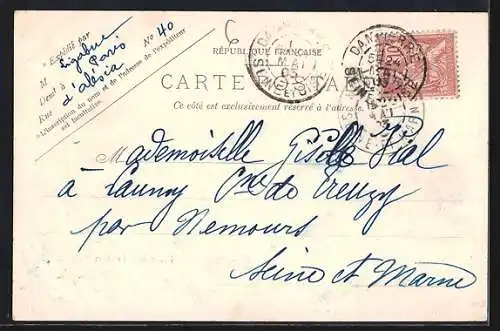 Expédié par
M Ligalme No 40
Demt à Paris
Rue d'alésia
L'inscription du nom et de l'adresse de l'expéditeur
est facultative
6
RÉPUBLIQUE FRANÇAISE
CARTE POSTALE
Ce côté est exclusivement réservé à l'adresse
DAMPIERRE
MAI
03
Mademoiselle Giselle Vial
à Launay Cne de Treuzy
par Nemours
Seine et Marne